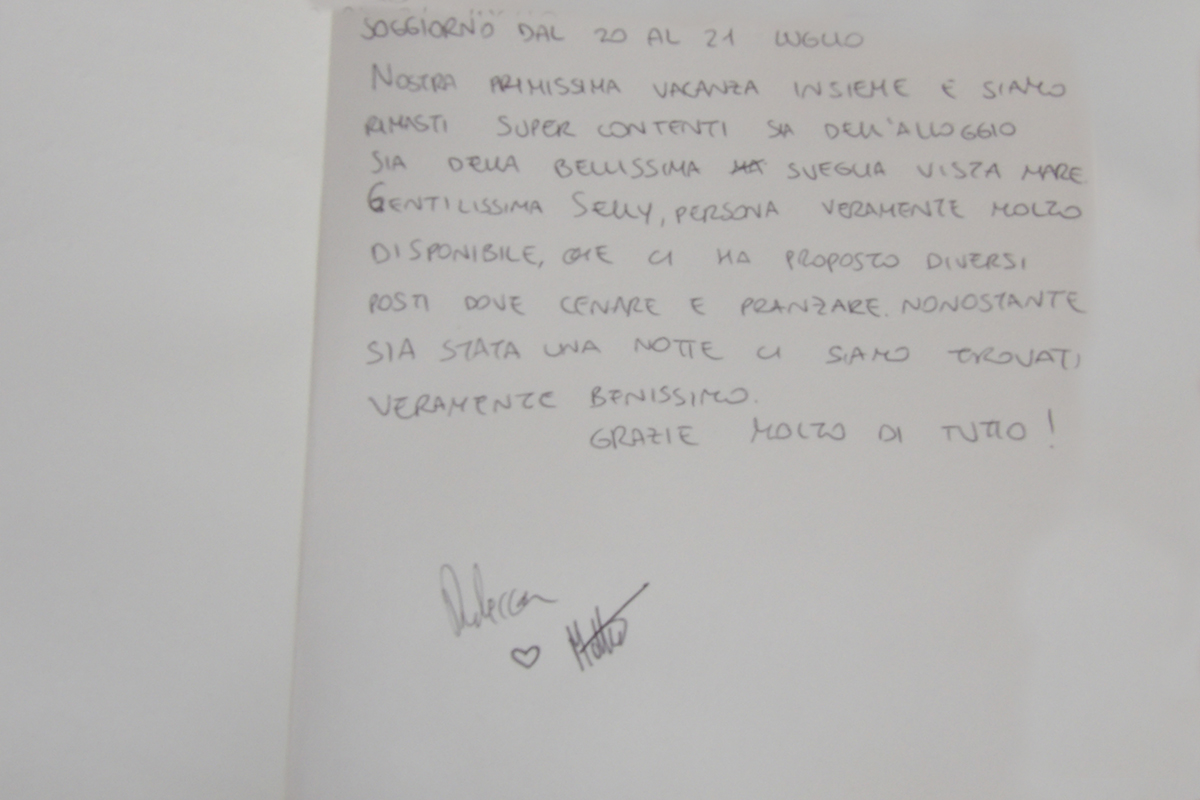 SOGGIORNO DAL 20 AL 21 LUGLIO
NOSTRA PRIMISSIMA VACANZA INSIEME E SIAMO
RIMASTI SUPER CONTENTI SIA DELL'ALLOGGIO
SIA DELLA BELLISSIMA SVEGLIA VISTA MARE.
GENTILISSIMA SELLY, PERSONA VERAMENTE MOLTO
DISPONIBILE, CHE CI HA PROPOSTO DIVERSI
POSTI DOVE CENARE E PRANZARE. NONOSTANTE
SIA STATA UNA NOTTE CI SIAMO TROVATI
VERAMENTE BENISSIMO.
GRAZIE MOLTO DI TUTTO!
Rebecca
♡ Matteo